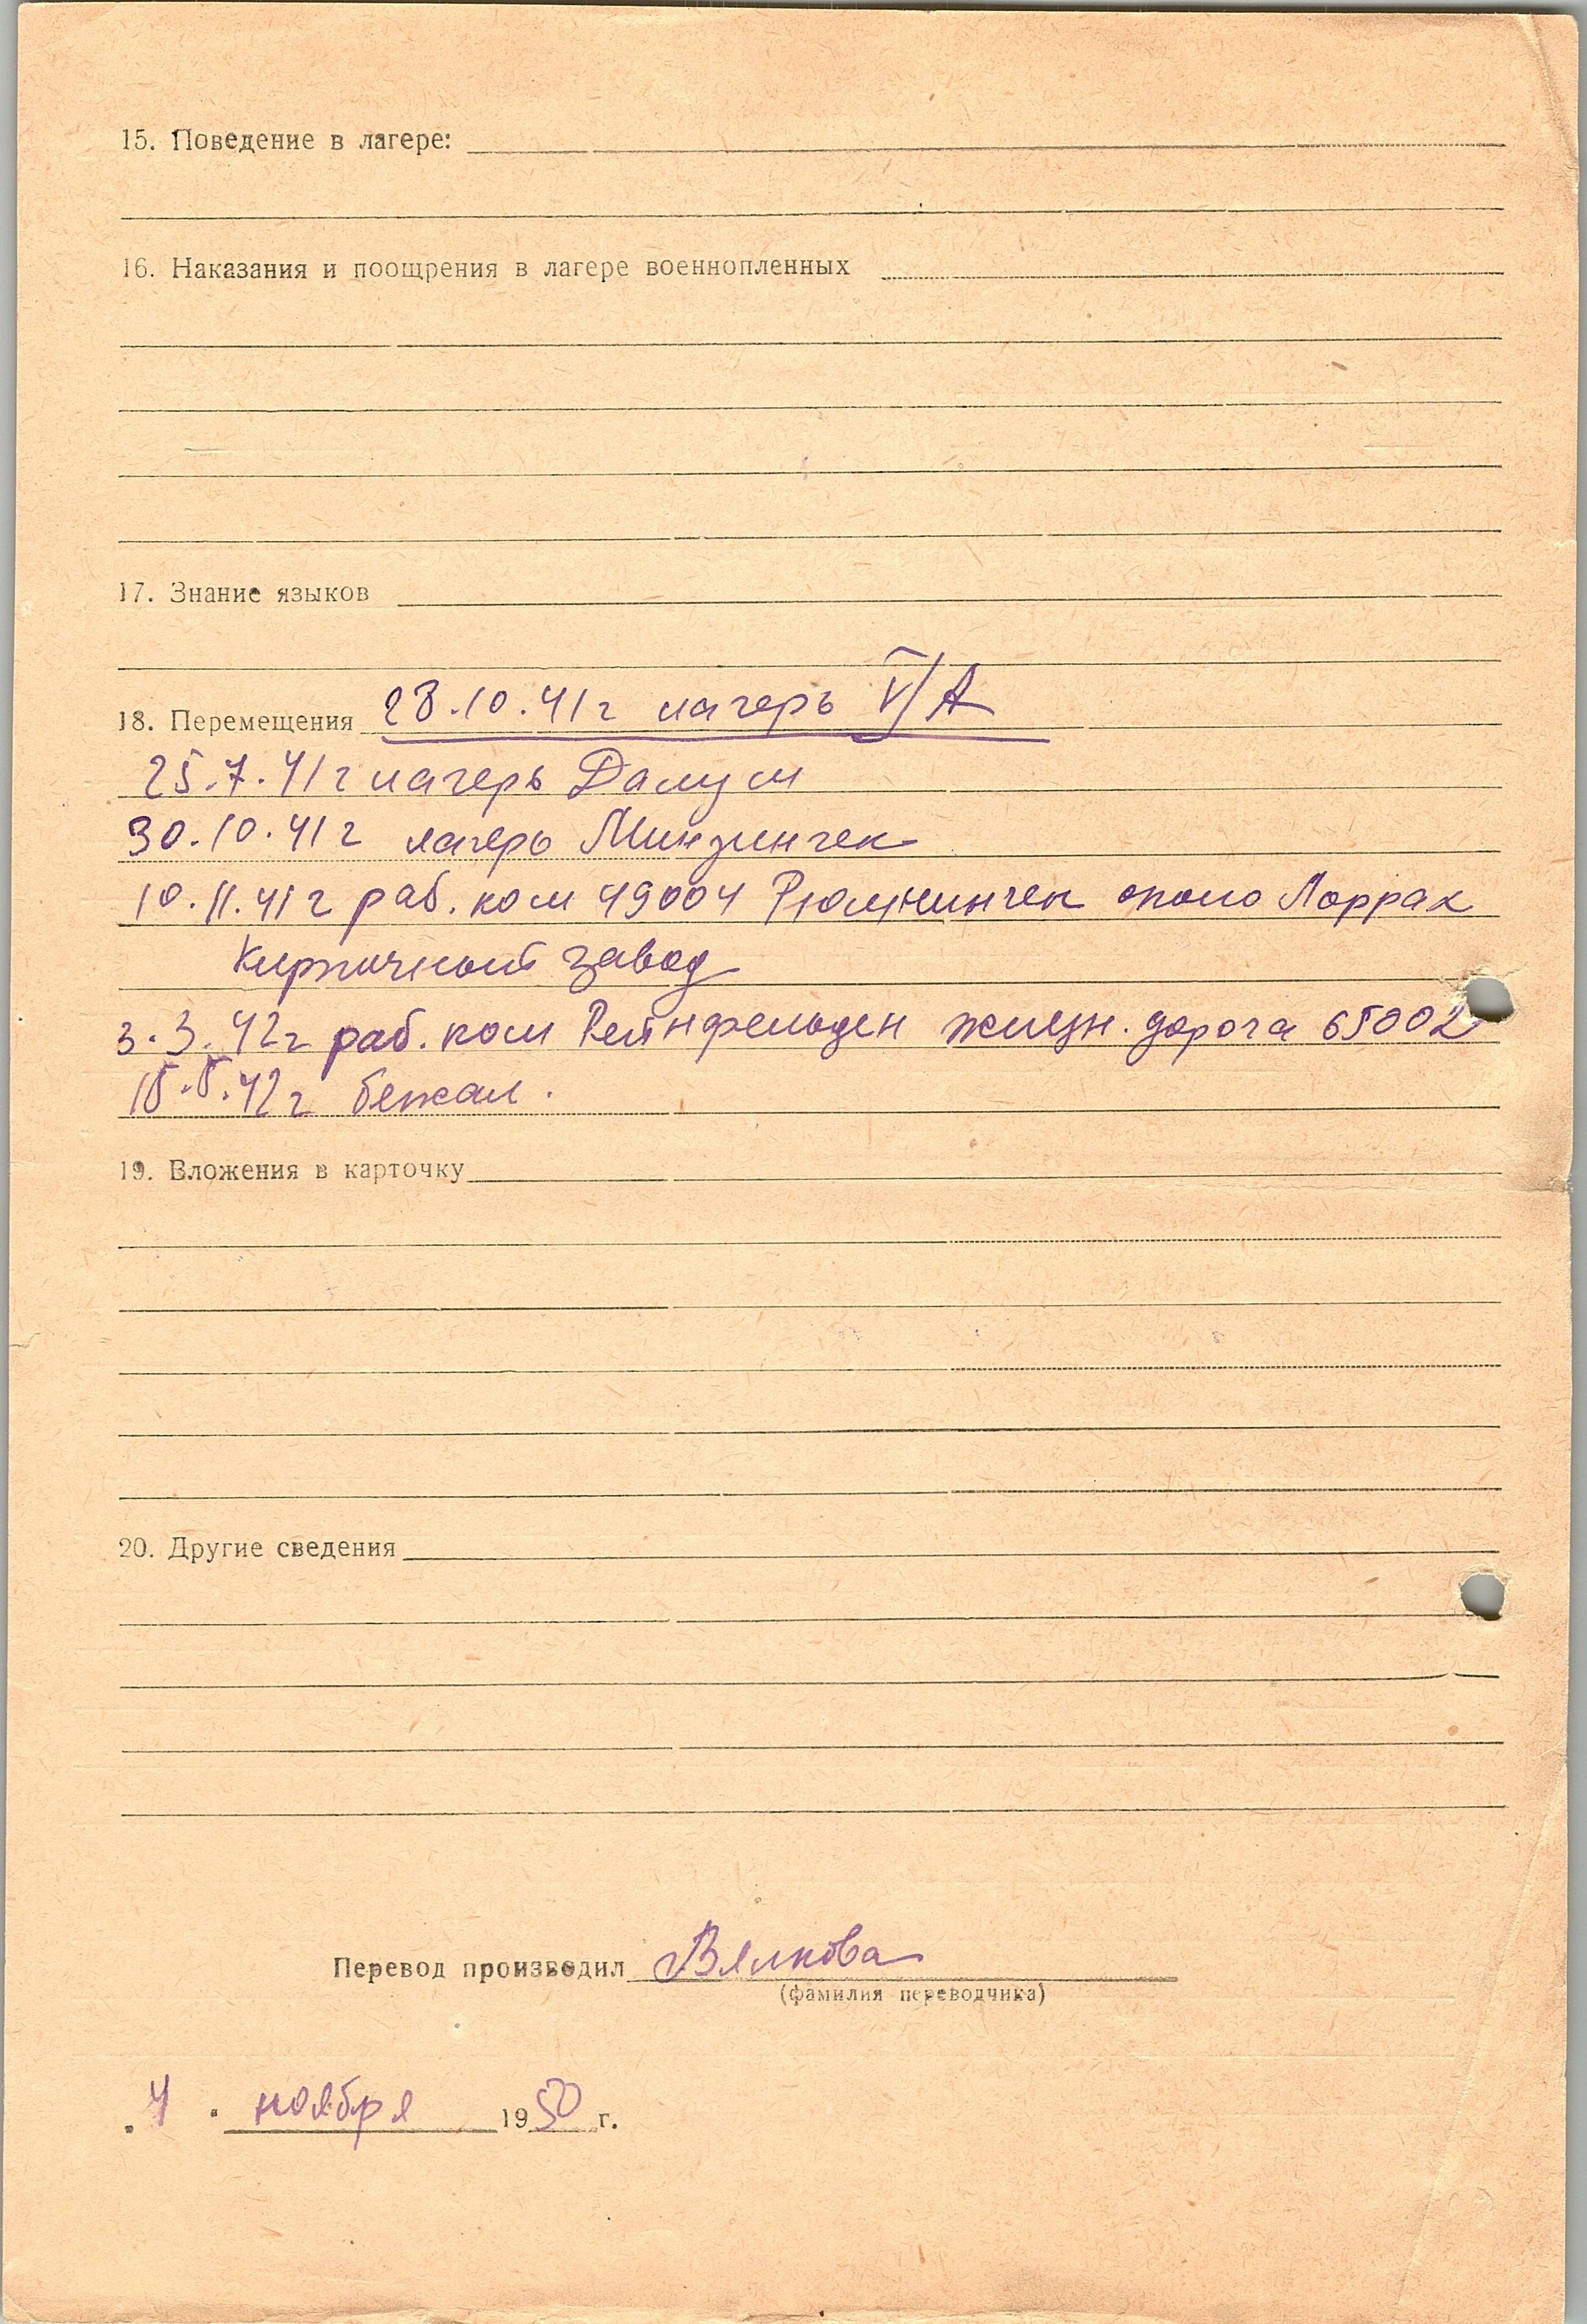 15. Поведение в лагере:
16. Наказания и поощрения в лагере военнопленных
17. Знание языков
18. Перемещения 28.10.41г лагерь V/A
25.7.41г лагерь Далум
30.10.41г лагерь Минзинген
10.11.41г раб. ком 49004 Рюмминген около Лоррах
Кирпичный завод
3.3.42г раб. ком Рейнфельден железн. дорога 65002
15.5.42г бежал.
19. Вложения в карточку
20. Другие сведения
Перевод производил Вялкова
(фамилия переводчика)
„4" ноября 1950 г.